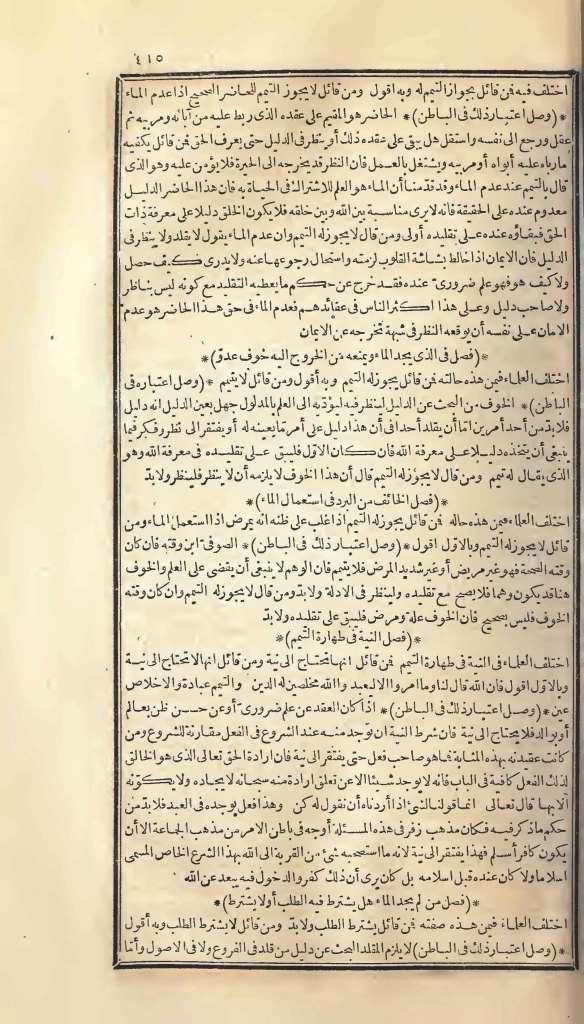 ٤١٥
اختلف فيه فن قائل بجواز التيمم له وبه اقول ومن قائل لا يجوز التيمم للحاضر الصحيح اذا عدم الماء
*(وصل اعتبار ذلك فى الباطن)* الحاضر هو المقيم على عقده الذى ربط عليه من آبائه ومربيه ثم
عقل ورجع الى نفسه واستقل هل يبقى على عقده ذلك أو ينظر فى الدليل حتى يعرف الحق فن قائل يكفيه
ما رباه عليه أبواه أو مربيه ويشتغل بالعمل فان النظر قد يخرجه الى الحيرة فلا يؤمن عليه وهو الذى
قال بالتيمم عند عدم الماء وقد قدمنا أن الماء هو العلم للاشتراك فى الحياة به فان هذا الحاضر الدليل
معدوم عنده على الحقيقة فانه لا يرى مناسبة بين الله وبين خلقه فلا يكون الخلق دليلا على معرفة ذات
الحق فبقاؤه عنده على تقليده أولى ومن قال لا يجوز له التيمم وان عدم الماء يقول لا يقلد ولا ينظر فى
الدليل فان الايمان اذا خالط بشاشة القلوب لزمته واستحال رجوعها عنه ولا يدرى كيف حصل
ولا كيف هو فهو علم ضرورى عنده فقد خرج عن حكم ما يعطيه التقليد مع كونه ليس بناظر
ولا صاحب دليل وعلى هذا اكثر الناس فى عقائدهم فعدم الماء فى حق هذا الحاضر هو عدم
الامان على نفسه أن يوقعه النظر فى شبهة تخرجه عن الايمان
*(فصل فى الذى يجد الماء ويمنعه من الخروج اليه خوف عدو)*
اختلف العلماء فيمن هذه حالته فن قائل يجوز له التيمم وبه أقول ومن قائل لا يتيمم *(وصل اعتباره فى
الباطن)* الخوف من البحث عن الدليل لينظر فيه ليؤديه الى العلم بالمدلول جهل بعين الدليل انه دليل
فلا بد من أحد أمرين اما أن يقلد أحدا فى أن هذا دليل على أمر ما يعينه له أو يفتقر الى نظر وفكر فيما
ينبغى أن يتخذه دليلا على معرفة الله فان كان الاول فليبق على تقليده فى معرفة الله وهو
الذى يقال له تيمم ومن قال لا يجوز له التيمم قال أن هذا الخوف لا يلزمه أن لا ينظر فلينظر ولا بد
*(فصل الخائف من البرد فى استعمال الماء)*
اختلف العلماء فيمن هذه حاله فن قائل يجوز له التيمم اذا غلب على ظنه انه يمرض اذا استعمل الماء ومن
قائل لا يجوز له التيمم وبالاول اقول *(وصل اعتبار ذلك فى الباطن)* الصوفى ابن وقته فان كان
وقته الصحة فهو غير مريض أو غير شديد المرض فلا يتيمم فان الوهم لا ينبغى أن يقضى على العلم والخوف
هنا قد يكون وهما فلا يصح مع تقليده ولينظر فى الادلة ولا بد ومن قال لا يجوز له التيمم وان كان وقته
الخوف فليس بصحيح فان الخوف علة ومرض فليبق على تقليده ولا بد
*(فصل النية فى طهارة التيمم)*
اختلف العلماء فى النية فى طهارة التيمم فن قائل انها تحتاج الى نية ومن قائل انها لا تحتاج الى نية
وبالاول اقول فان الله قال لنا وما امروا الا ليعبدوا الله مخلصين له الدين والتيمم عبادة والاخلاص
عين *(وصل اعتبار ذلك فى الباطن)* اذا كان العقد عن علم ضرورى أو عن حسن ظن بعالم
أو بوالد فلا يحتاج الى نية فان شرط النية ان توجد منه عند الشروع فى الفعل مقارنة للشروع ومن
كانت عقيدته بهذه المثابة فما هو صاحب فعل حتى يفتقر الى نية فان ارادة الحق تعالى الذى هو الخالق
لذلك الفعل كافية فى الباب فانه لا يوجد شيئا الا عن تعلق ارادة منه سبحانه لايجاده ولا يكونه
الا بها قال تعالى انما قولنا لشئ اذا أردناه أن نقول له كن وهذا فعل يوجده فى العبد فلا بد من
حكم ما ذكر فيه فكان مذهب زفر فى هذه المسئلة أوجه فى باطن الامر من مذهب الجماعة الا أن
يكون كافرا أسلم فهذا يفتقر الى نية لانه ما استصحبه شئ من القربة الى الله بهذا الشرع الخاص المسمى
اسلاما ولا كان عنده قبل اسلامه بل كان يرى أن ذلك كفر والدخول فيه يبعد عن الله
*(فصل من لم يجد الماء هل يشترط فيه الطلب أو لا يشترط)*
اختلف العلماء فيمن هذه صفته فن قائل يشترط الطلب ولا بد ومن قائل لا يشترط الطلب وبه أقول
*(وصل اعتبار ذلك فى الباطن)* لا يلزم المقلد البحث عن دليل من قلده فى الفروع ولا فى الاصول وأما